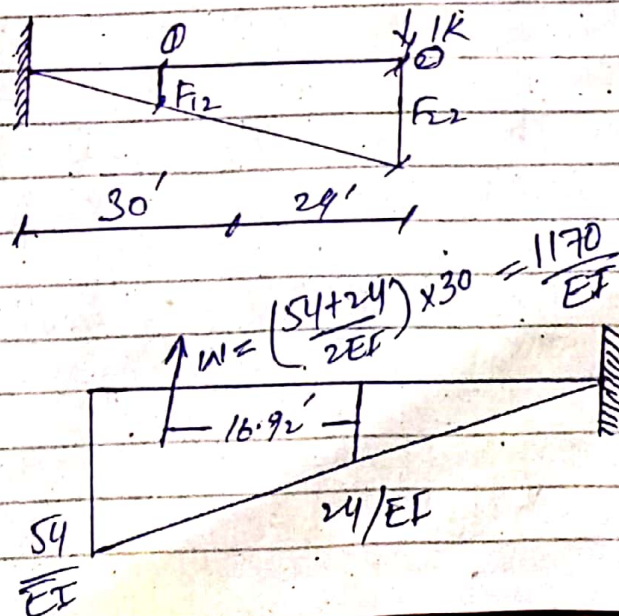 ① ↓ 1K
②
F12
F22
30' 24'
W = (54+24/2EI) ×30 = 1170/EI
16.92'
24/EI
54/EI